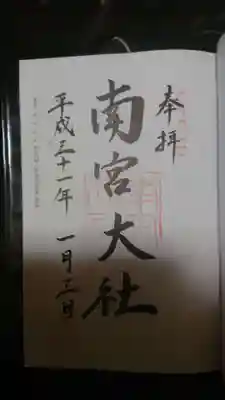 奉拝
南宮大社
平成三十一年 一月三日